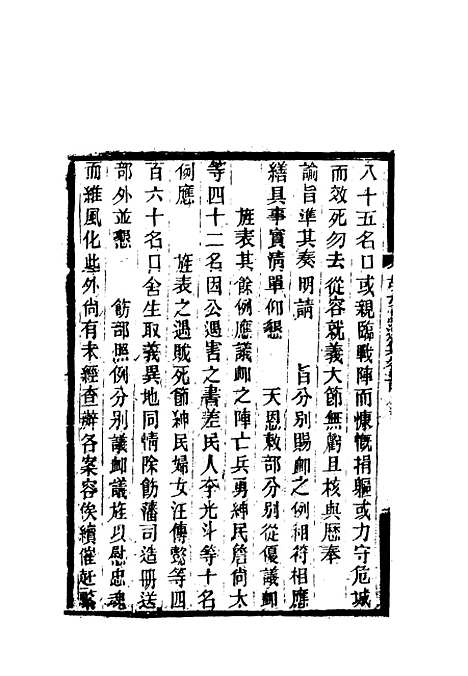 八十五名口或親臨戰陣而慷慨捐軀或力守危城
而效死勿去從容就義大節無虧且核與歷奉
諭旨準其奏明請　旨分別賜卹之例相符相應
繕具事實清單仰懇　天恩敕部分別從優議卹
旌表其餘例應議卹之陣亡兵勇紳民詹尚太
等四十二名因公遇害之書差民人李光斗等十名
例應　旌表之遇賊死節紳民婦女汪傳懿等四
百六十名口舍生取義異地同情除飭藩司造冊送
部外並懇　飭部照例分別議卹議旌以慰忠魂
而維風化此外尚有未經查辦各案容俟續催趕緊